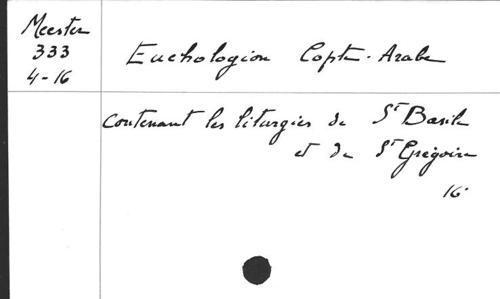 Meester
333
4-16
Euchologion Copte-Arabe
contenant les liturgies de St Basile
et de St Grégoire
16°